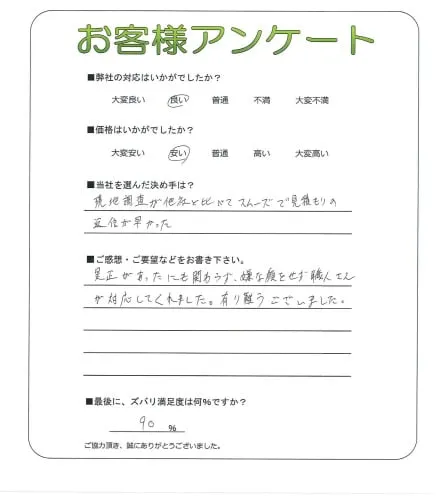 お客様アンケート
■弊社の対応はいかがでしたか?
大変良い 良い 普通 不満 大変不満
■価格はいかがでしたか?
大変安い 安い 普通 高い 大変高い
■当社を選んだ決め手は?
現地調査が他社と比べてスムーズで見積もりの
返信が早かった
■ご感想・ご要望などをお書き下さい。
是正があったにも関わらず、嫌な顔をせず職人さん
が対応してくれました。有り難うございました。
■最後に、ズバリ満足度は何%ですか?
90 %
ご協力頂き、誠にありがとうございました。